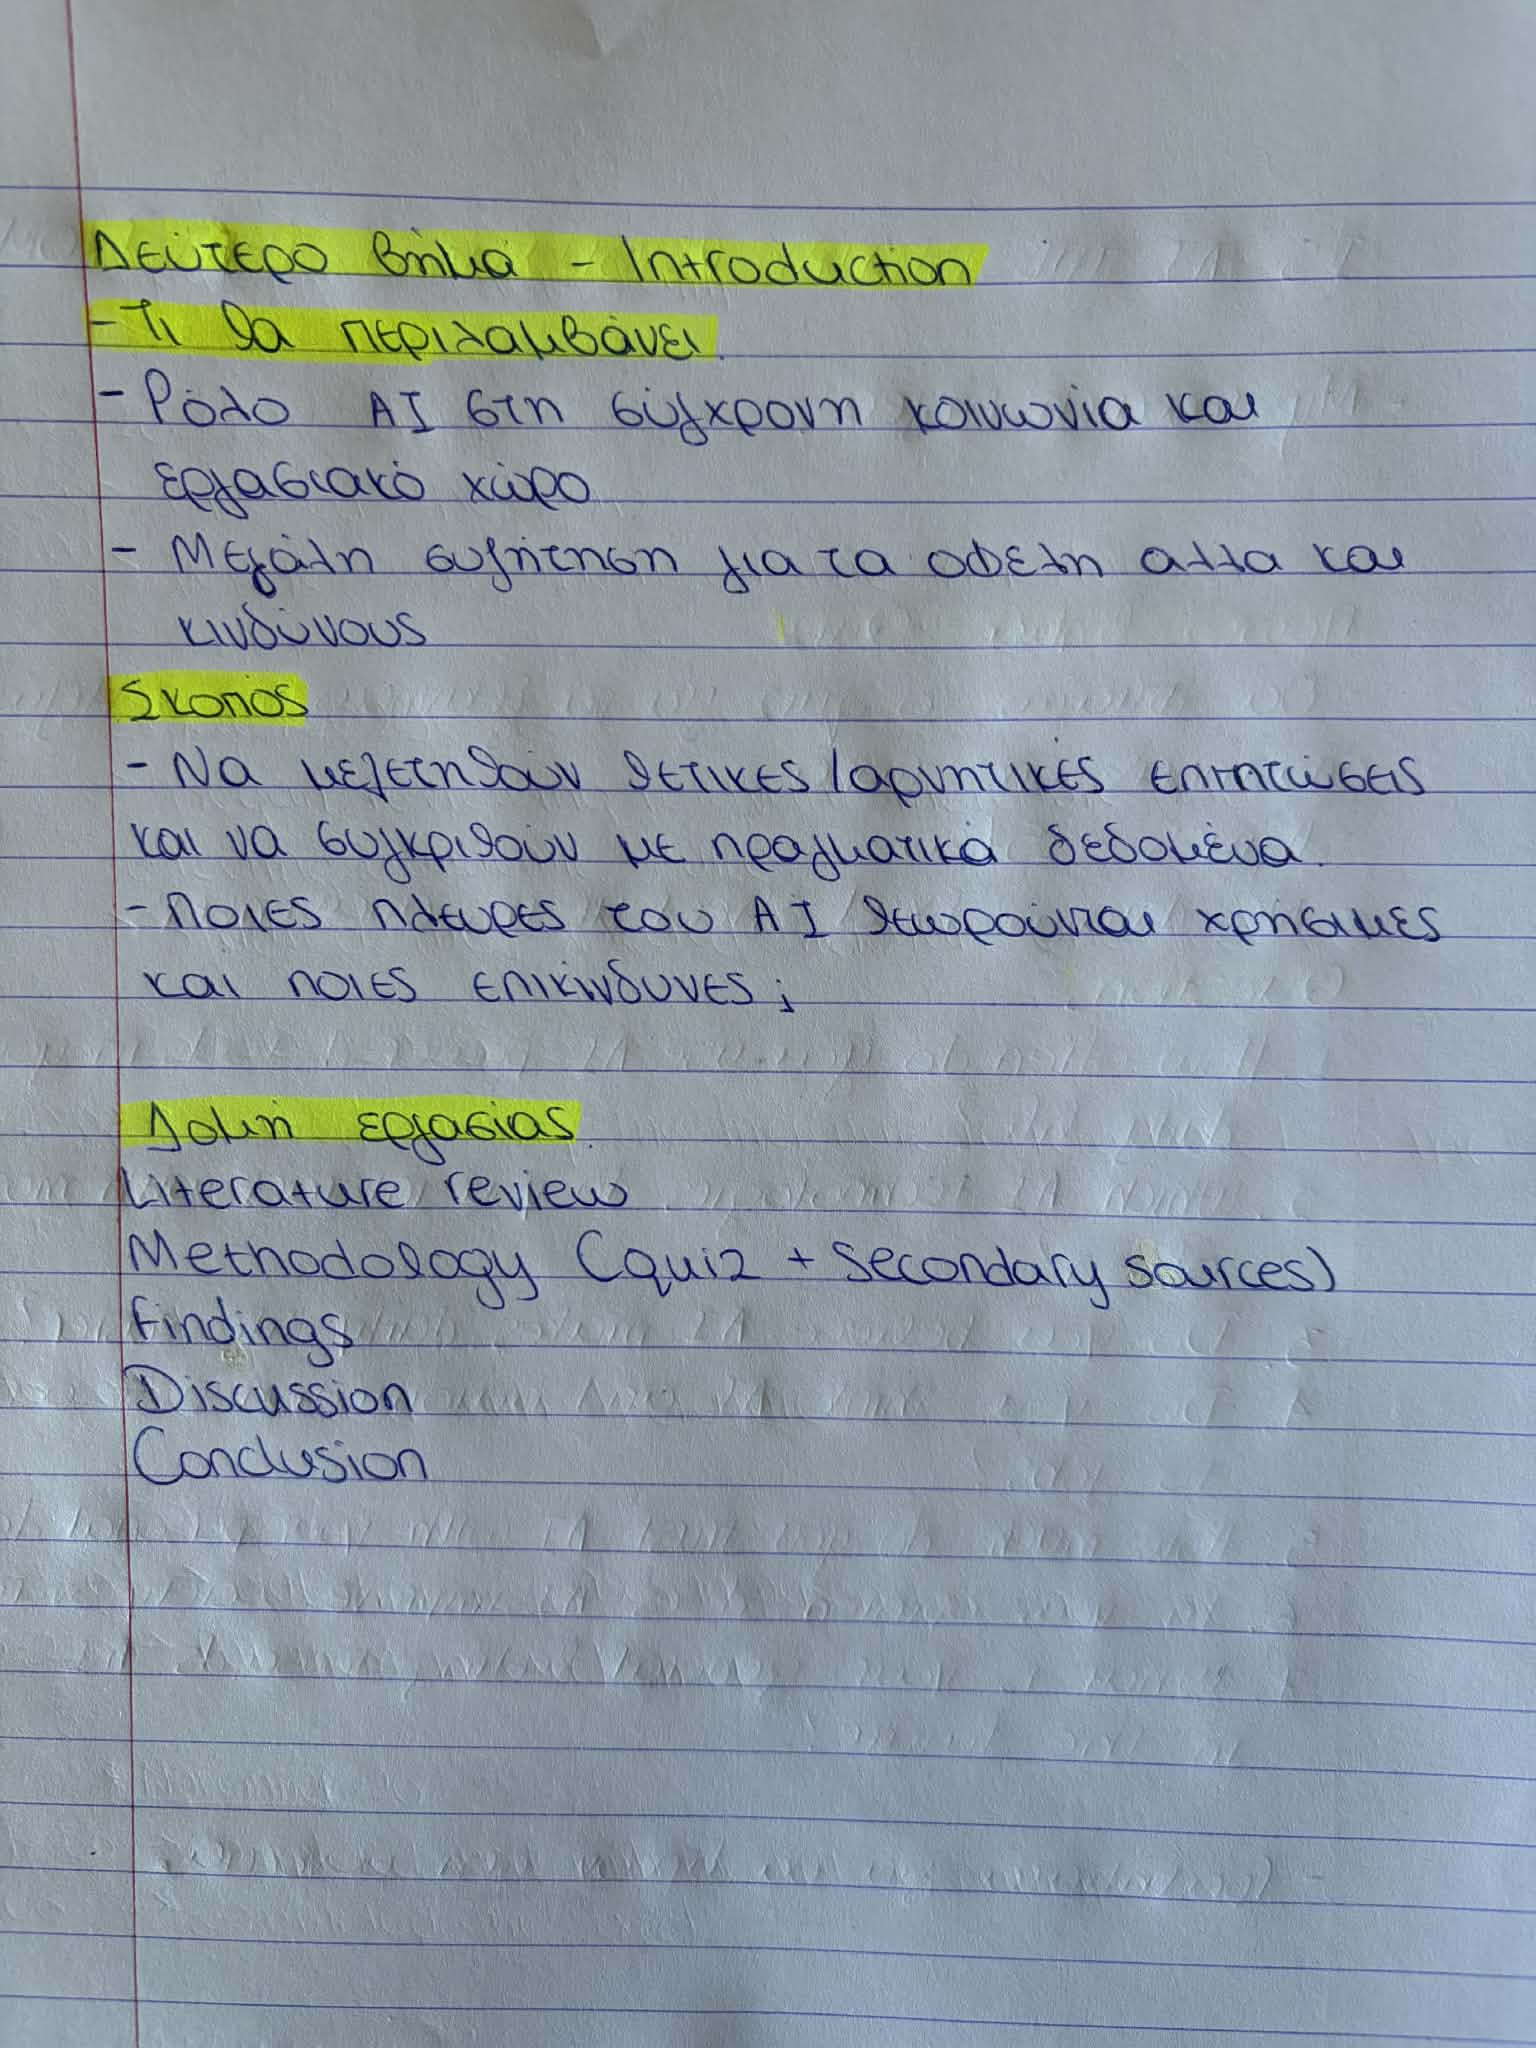 Δεύτερο βήμα - Introduction
- Τι θα περιλαμβάνει
- Ρόλο AI στη σύγχρονη κοινωνία και
εργασιακό χώρο
- Μεγάλη συζήτηση για τα οφελη αλλα και
κινδύνους
Σκοπός
- Να μελετηθούν θετικες/αρνητικές επιπτώσεις
και να συγκριθούν με πραγματικά δεδομένα.
- Ποιες πλευρες του AI θεωρούνται χρήσιμες
και ποιες επικίνδυνες;
Δομή εργασίας
Literature review
Methodology (quiz + secondary sources)
Findings
Discussion
Conclusion